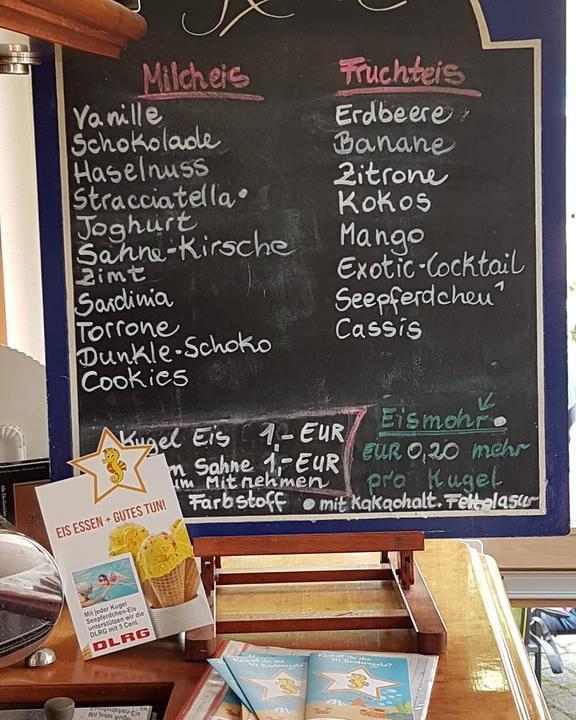 Milcheis
Vanille
Schokolade
Haselnuss
Stracciatella•
Joghurt
Sahne-Kirsche
Zimt
Sardinia
Torrone
Dunkle-Schoko
Cookies
Fruchteis
Erdbeere
Banane
Zitrone
Kokos
Mango
Exotic-Cocktail
Seepferdchen¹
Cassis
Kugel Eis 1,- EUR
Sahne 1,- EUR
Mitnehmen
Eismohr•
EUR 0,20 mehr
pro Kugel
Farbstoff • mit Kakaohalt. Fettglasur
EIS ESSEN + GUTES TUN!
Mit jeder Kugel
Seepferdchen-Eis
unterstützen wir die
DLRG mit 5 Cent.
DLRG
Kennst du die
10 Baderegeln?